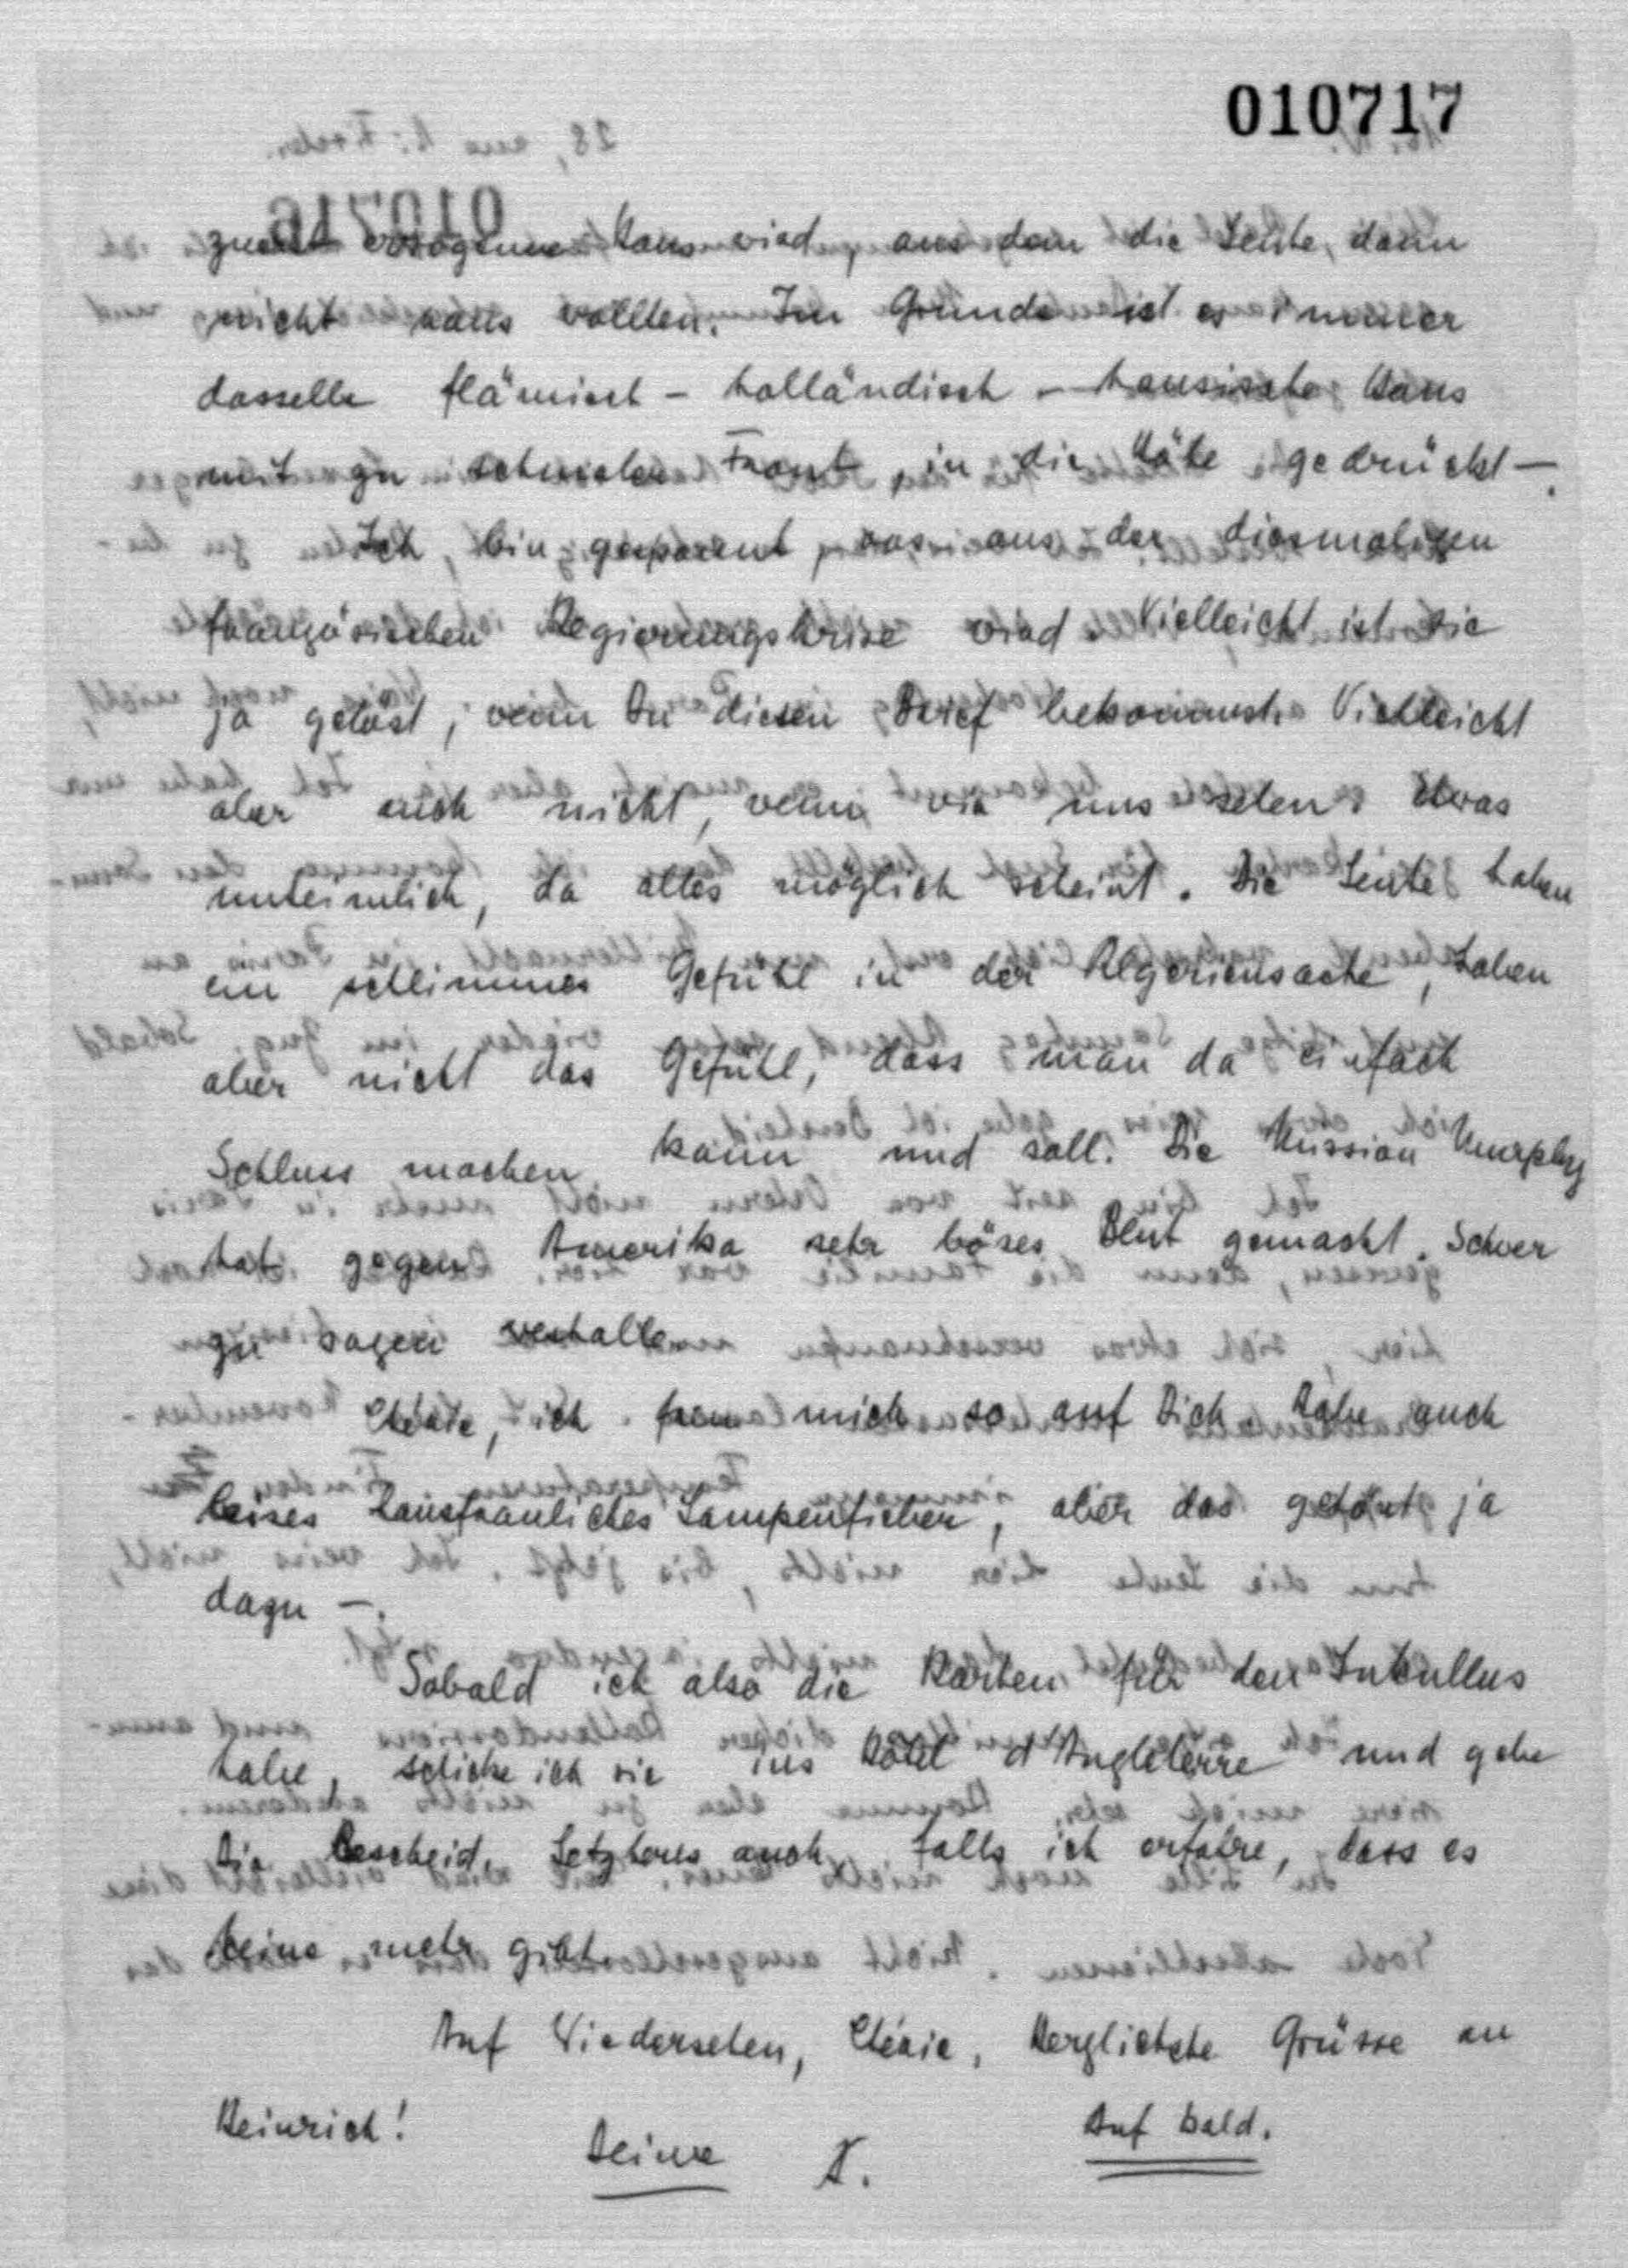 010717
zuerst bezogenes Haus wird, aus dem die Leute dann
nicht raus wollten. Im Grunde ist es immer
dasselbe flämisch - holländisch - hansische Haus
mit zu schmaler Front, in die Höhe gedrückt —.
Ich bin gespannt, was aus der diesmaligen
französischen Regierungskrise wird. Vielleicht ist sie
ja gelöst, wenn Du diesen Brief bekommst. Vielleicht
aber auch nicht, wenn wir uns sehen. Etwas
unheimlich, da alles möglich scheint. Die Leute haben
ein schlimmes Gefühl in der Algeriensache, haben
aber nicht das Gefühl, dass man da einfach
Schluss machen kann und soll. Die Mission Murphy
hat gegen Amerika sehr böses Blut gemacht. Schwer
zu sagen weshalb
Chérie, ich freu mich so auf Dich. Habe auch
leises hausfrauliches Lampenfieber, aber das gehört ja
dazu —.
Sobald ich also die Karten für den Lukullus
habe, schicke ich sie ins Hôtel d'Angleterre und gebe
Dir Bescheid. Letzteres auch, falls ich erfahre, dass es
keine mehr gibt.
Auf Wiedersehen, Chérie. Herzlichste Grüsse an
Heinrich!
Auf bald.
Deine